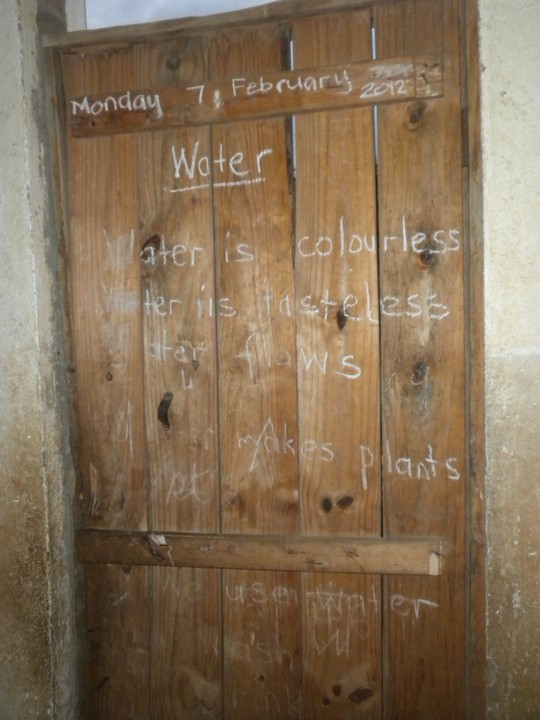 Monday 7, February, 2012
Water
Water is colourless
Water is tasteless
Water flows
Water makes plants
We use water
wash